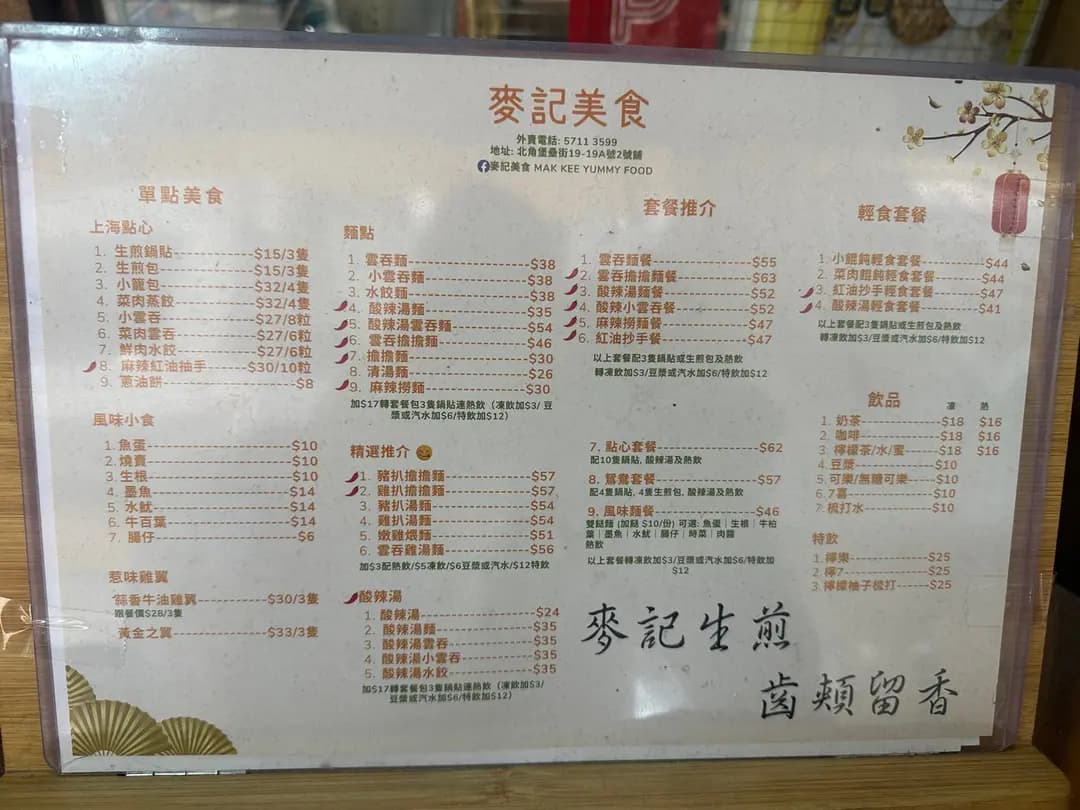 麥記美食
外賣電話: 5711 3599
地址: 北角堡壘街19-19A號2號舖
麥記美食 MAK KEE YUMMY FOOD
單點美食
上海點心
1. 生煎鍋貼 $15/3隻
2. 生煎包 $15/3隻
3. 小籠包 $32/4隻
4. 菜肉蒸餃 $32/4隻
5. 小雲吞 $27/8粒
6. 菜肉雲吞 $27/6粒
7. 鮮肉水餃 $27/6粒
8. 麻辣紅油抽手 $30/10粒
9. 蔥油餅 $8
風味小食
1. 魚蛋 $10
2. 燒賣 $10
3. 生根 $10
4. 墨魚 $14
5. 水魷 $14
6. 牛百葉 $14
7. 腸仔 $6
惹味雞翼
蒜香牛油雞翼 $30/3隻
跟餐價$28/3隻
黃金之翼 $33/3隻
麵點
1. 雲吞麵 $38
2. 小雲吞麵 $38
3. 水餃麵 $38
4. 酸辣湯麵 $35
5. 酸辣湯雲吞麵 $54
6. 雲吞擔擔麵 $46
7. 擔擔麵 $30
8. 清湯麵 $26
9. 麻辣撈麵 $30
加$17轉套餐包3隻鍋貼連熱飲（凍飲加$3/ 豆
漿或汽水加$6/特飲加$12）
精選推介
1. 豬扒擔擔麵 $57
2. 雞扒擔擔麵 $57
3. 豬扒湯麵 $54
4. 雞扒湯麵 $54
5. 嫩雞煨麵 $51
6. 雲吞雞湯麵 $56
加$3配熱飲/$5凍飲/$6豆漿或汽水/$12特飲
酸辣湯
1. 酸辣湯 $24
2. 酸辣湯麵 $35
3. 酸辣湯雲吞 $35
4. 酸辣湯小雲吞 $35
5. 酸辣湯水餃 $35
加$17轉套餐包3隻鍋貼連熱飲（凍飲加$3/
豆漿或汽水加$6/特飲加$12）
套餐推介
1. 雲吞麵餐 $55
2. 雲吞擔擔麵餐 $63
3. 酸辣湯麵餐 $52
4. 酸辣小雲吞餐 $52
5. 麻辣撈麵餐 $47
6. 紅油抄手餐 $47
以上套餐配3隻鍋貼或生煎包及熱飲
轉凍飲加$3/豆漿或汽水加$6/特飲加$12
7. 點心套餐 $62
配10隻鍋貼, 酸辣湯及熱飲
8. 鴛鴦套餐 $57
配4隻鍋貼, 4隻生煎包, 酸辣湯及熱飲
9. 風味麵餐 $46
雙餸麵 (加餸 $10/份) 可選: 魚蛋｜生根｜牛柏
葉｜墨魚｜水魷｜腸仔｜時菜｜肉醬
熱飲
以上套餐轉凍飲加$3/豆漿或汽水加$6/特飲加
$12
輕食套餐
1. 小餛飩輕食套餐 $44
2. 菜肉餛飩輕食套餐 $44
3. 紅油抄手輕食套餐 $47
4. 酸辣湯輕食套餐 $41
以上套餐配3隻鍋貼或生煎包及熱飲
轉凍飲加$3/豆漿或汽水加$6/特飲加$12
飲品 凍 熱
1. 奶茶 $18 $16
2. 咖啡 $18 $16
3. 檸檬茶/水/蜜 $18 $16
4. 豆漿 $10
5. 可樂/無糖可樂 $10
6. 7喜 $10
7. 梳打水 $10
特飲
1. 檸樂 $25
2. 檸7 $25
3. 檸檬柚子梳打 $25
麥記生煎
齒頰留香